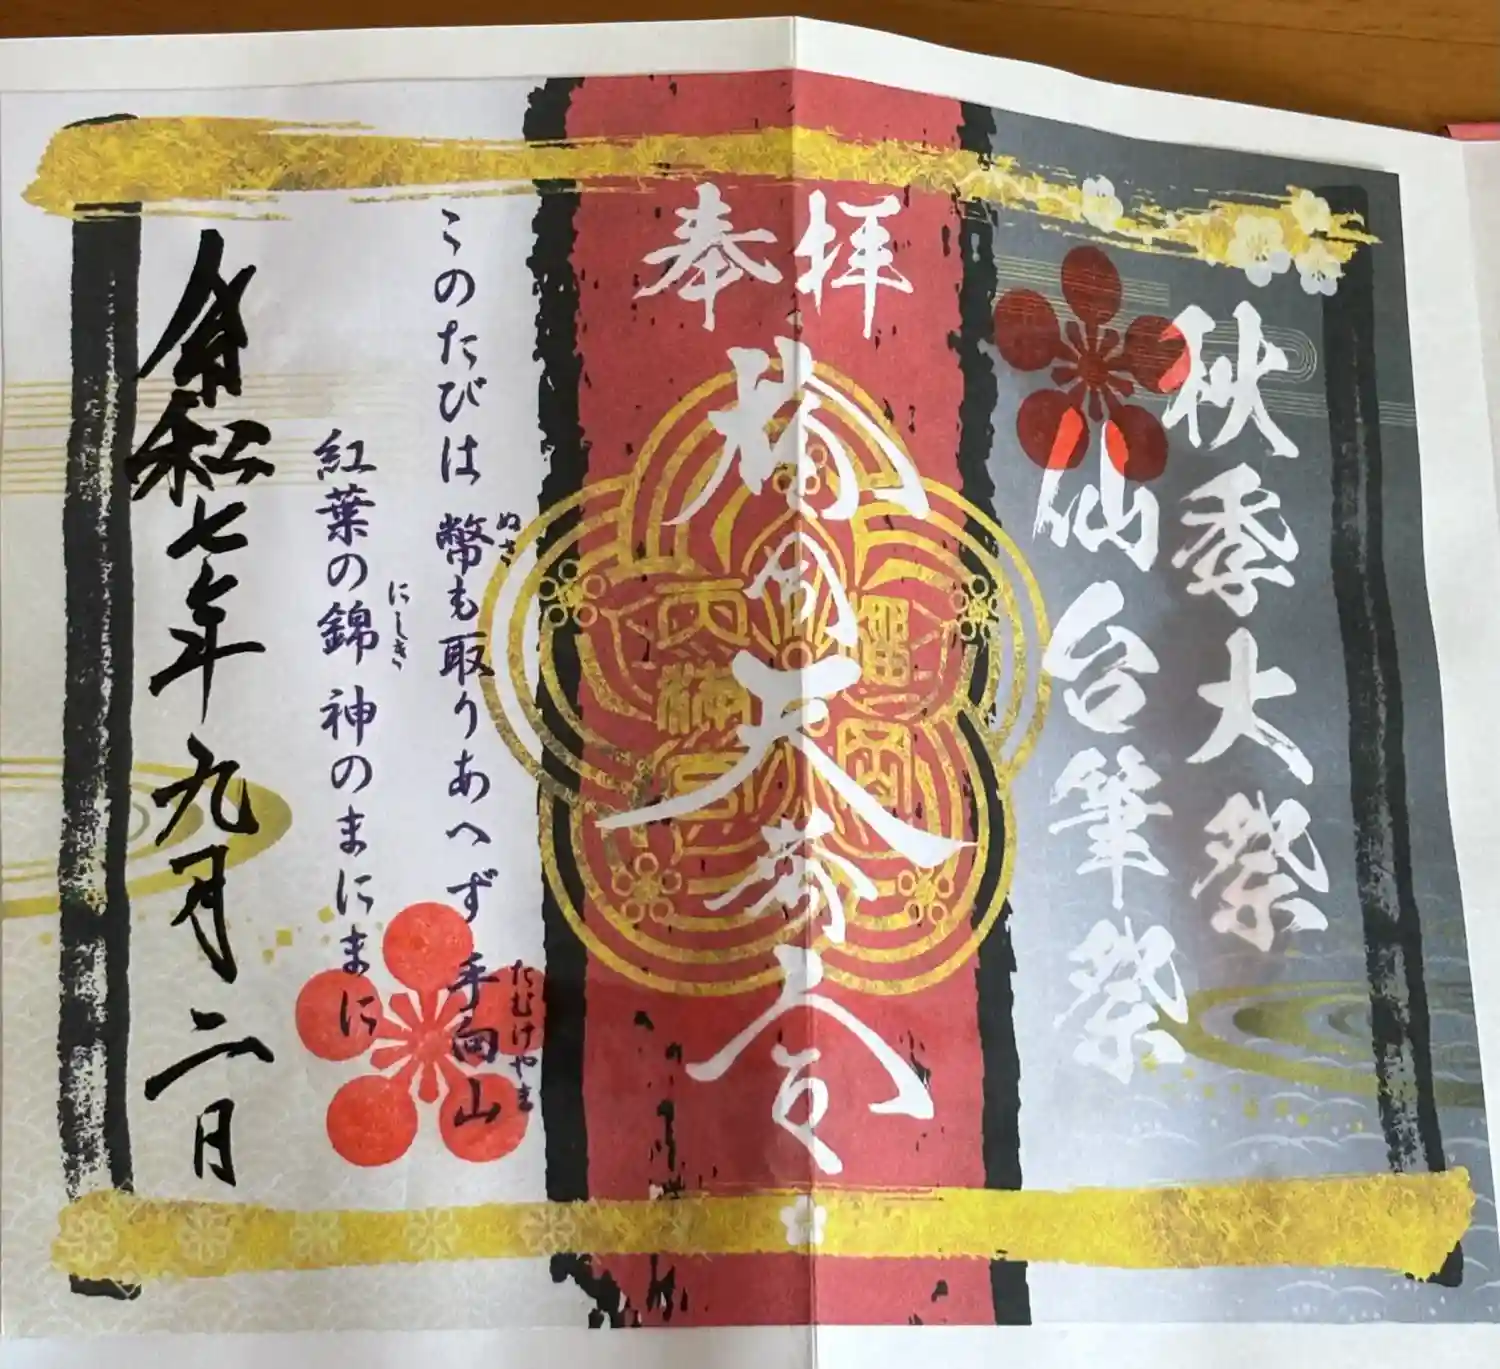 秋季大祭
仙台筆祭
奉拝
榴岡天満宮
このたびは 幣も取りあへず 手向山
ぬさ
たむけやま
紅葉の錦 神のまにまに
にしき
令和七年九月二日